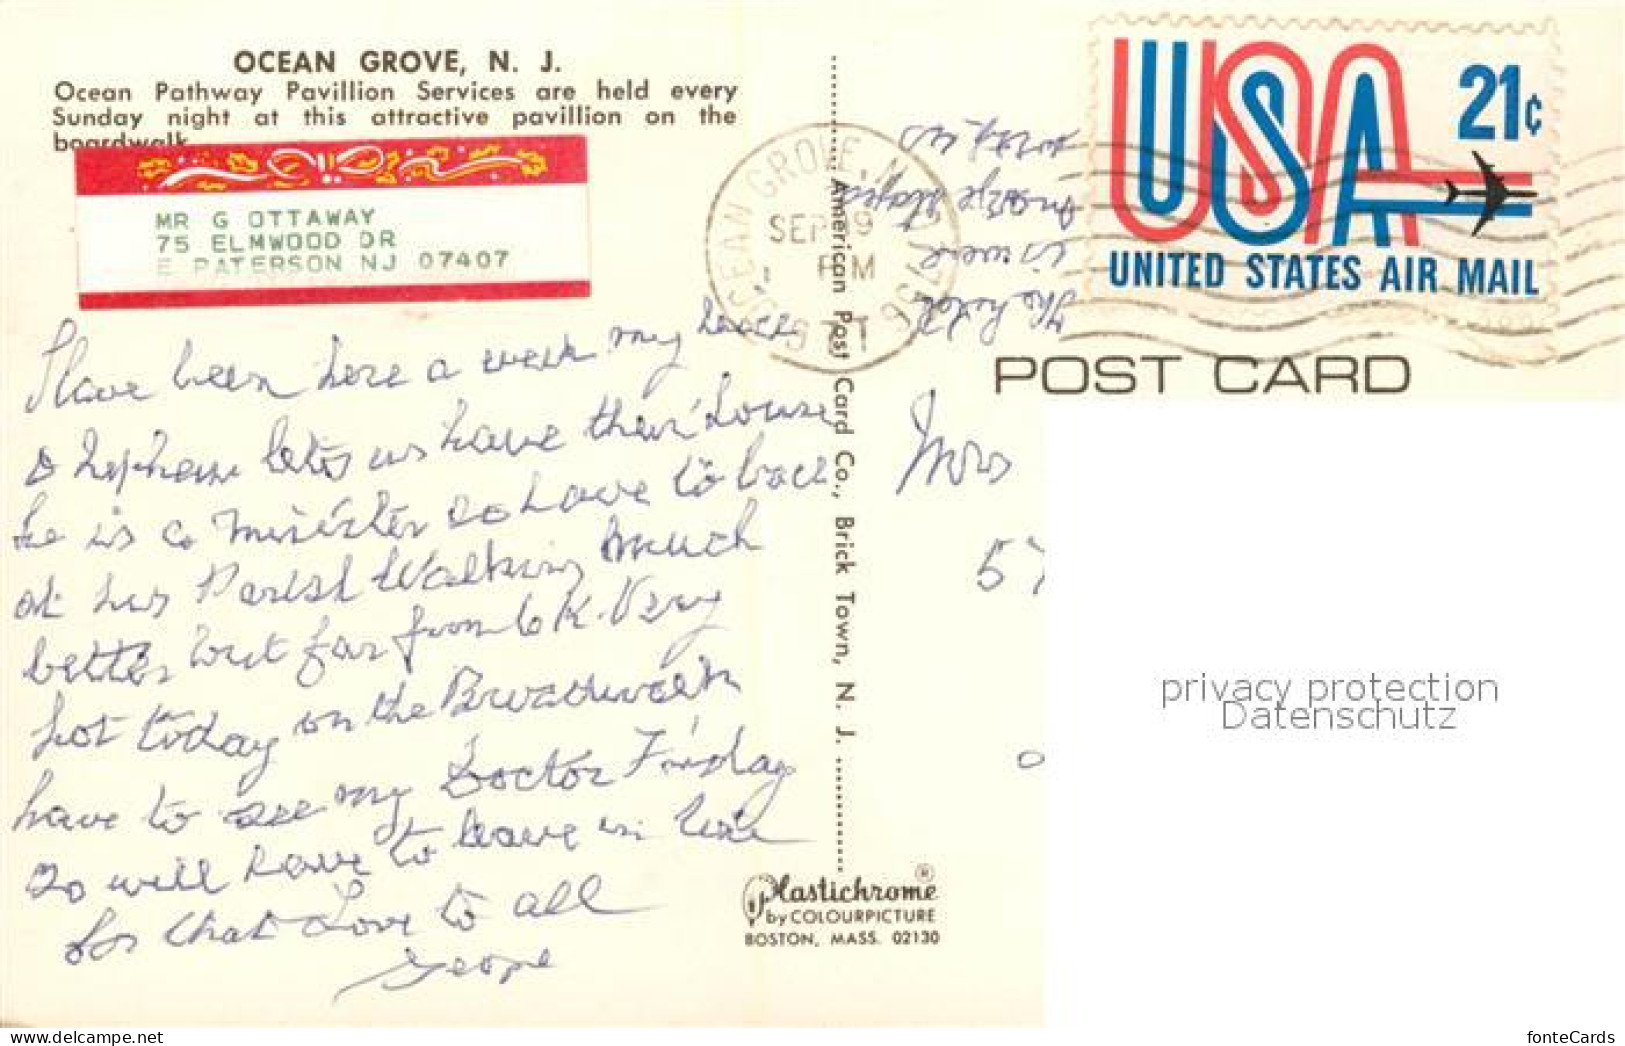 OCEAN GROVE, N. J.
Ocean Pathway Pavillion Services are held every
Sunday night at this attractive pavillion on the
boardwalk
MR G OTTAWAY
75 ELMWOOD DR
E PATERSON NJ 07407
Have been here a week my
& lets us have their house
he is a minister so have to back
at his Parish Walking much
better but far from O K. Very
hot today on the Broadwalk
have to see my Doctor Friday
so will have to leave in time
for that Love to all
George
American Post Card Co., Brick Town, N. J.
Plastichrome®
by COLOURPICTURE
BOSTON, MASS. 02130
OCEAN GROVE, N.J.
SEP 9
PM
The hotel
USA 21c
UNITED STATES AIR MAIL
POST CARD
Mrs
57
privacy protection
Datenschutz
www.delcampe.net
fonteCards